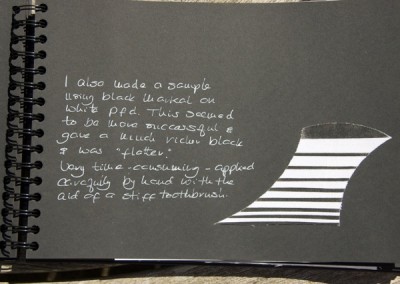 I also made a sample
using black marical on
white pfd. This seemed
to be more successful &
gave a much richer black
& was "flatter."
Very time-consuming - applied
carefully by hand with the
aid of a stiff toothbrush.